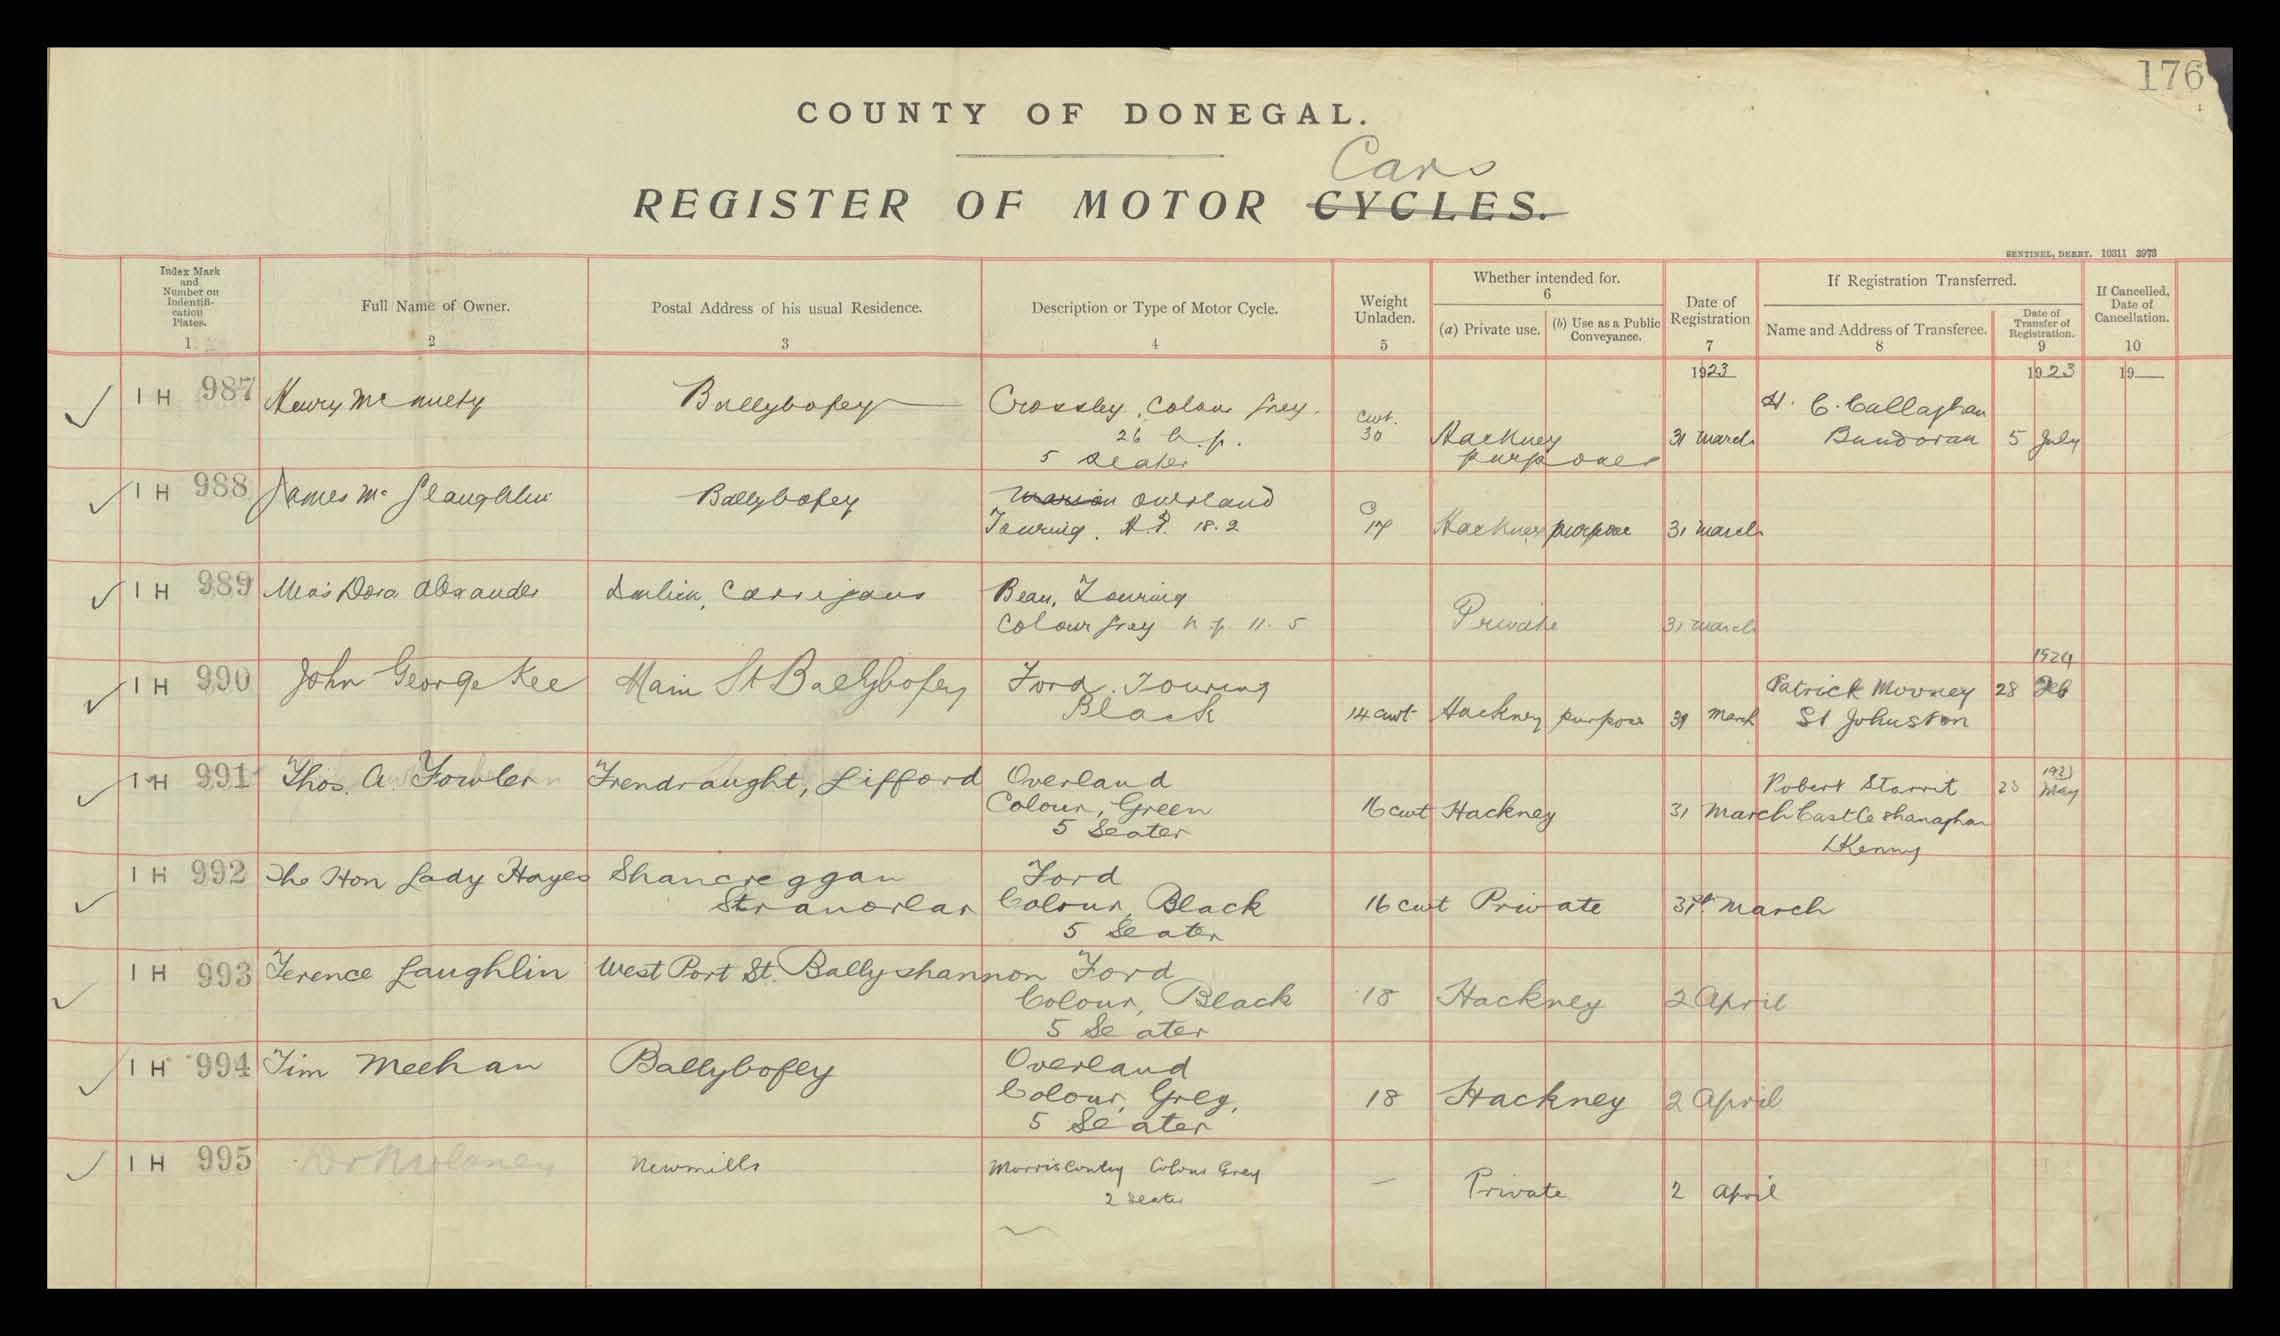 176
COUNTY OF DONEGAL.
Cars
REGISTER OF MOTOR CYCLES.
SENTINEL, DERRY. 10311 3973
Index Mark and Number on Indentifi-cation Plates. 1
Full Name of Owner. 2
Postal Address of his usual Residence. 3
Description or Type of Motor Cycle. 4
Weight Unladen. 5
Whether intended for. 6
(a) Private use. (b) Use as a Public Conveyance.
Date of Registration 7
If Registration Transferred.
Name and Address of Transferee. 8
Date of Transfer of Registration. 9
If Cancelled, Date of Cancellation. 10
1923 1923 19
IH 987 Henry Mc Ballybofey Crossley, Colour Grey. H. C. Callaghan
26 h.p. cwt. 30 Hackney 31 March Bundoran 5 July
5 Seater purposes
IH 988 James Mc Glaughlin Ballybofey Overland
Touring. H.P. 18.2 C 17 Hackney purpose 31 March
IH 989 Miss Dora Alexander Carrigans Bean, Touring
Colour Grey h.p. 11.5 Private 31 March
1924
IH 990 John George Kee Main St Ballybofey Ford. Touring Patrick Mooney 28 Feb
Black 14 cwt Hackney purpose 31 March St Johnston
IH 991 Thos. A. Fowler Trendraught, Lifford Overland Robert Starrit 23 May
Colour, Green 16 cwt Hackney 31 March Castleshanaghan
5 Seater LKenny
IH 992 The Hon Lady Hayes Shancreggan Ford
Stranorlar Colour, Black 16 cwt Private 31st March
5 Seater
IH 993 Terence Laughlin West Port St. Ballyshannon Ford
Colour, Black 18 Hackney 2 April
5 Seater
IH 994 Tim Meehan Ballybofey Overland
Colour, Grey, 18 Hackney 2 April
5 Seater
IH 995 Dr Newmills Morris Cowley Colour Grey
2 Seater — Private 2 April